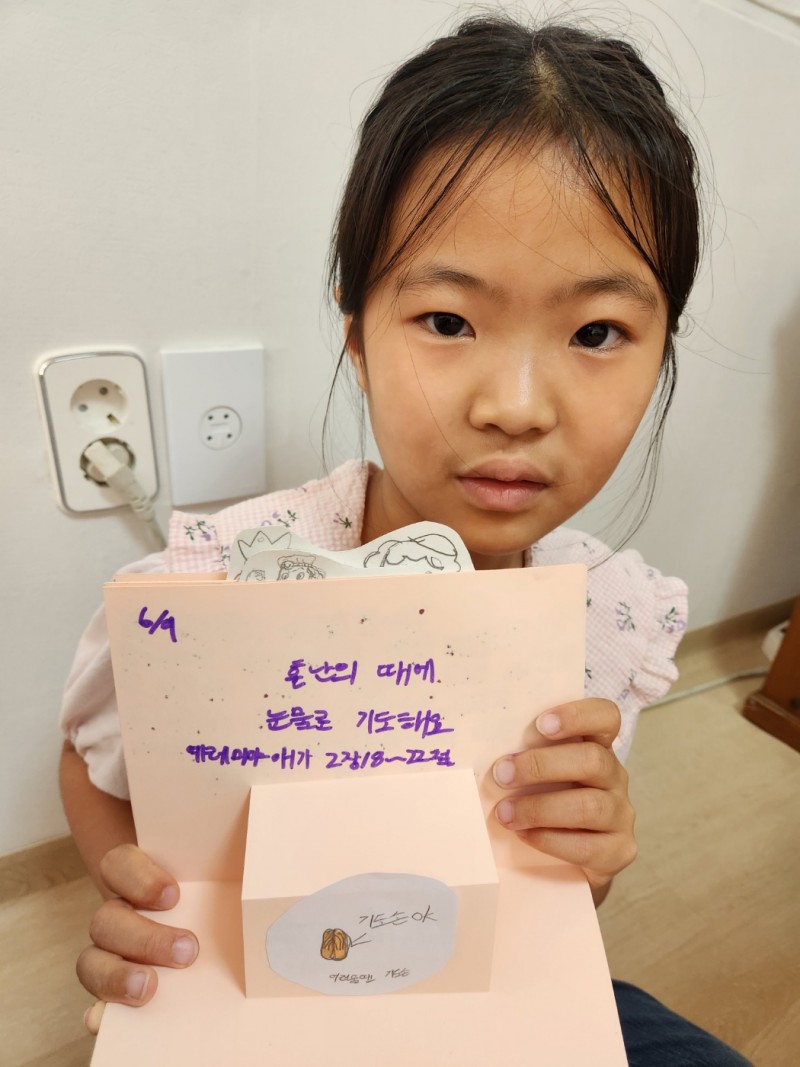 6/9
혼난의 때에
눈물로 기도해요
예레미야 애가 2장18~22절
기도손 OK
어려울땐 기도손